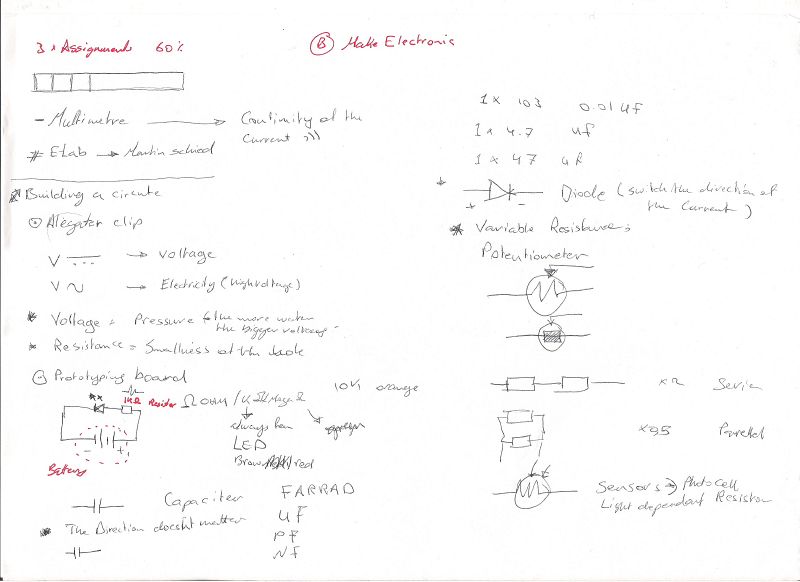 3 x Assignments 60%
B Make Electronis
- Multimetre → Continuity of the
Current )))
# ELab → Martin
* Building a circute
Alegater clip
V → voltage
V ~ → Electricity (High voltage)
* Voltage = Pressure the more water
the bigger voltage
* Resistance = Smallness of the hole
Prototyping board
1KΩ Resistor Ω OHM / K Mega Ω 10K orange
always
LED
Brow red
- +
Battery
Capaciter FARRAD
UF
* The Direction doesnt matter
PF
NF
1 x 103 0.01 uf
1 x 4.7 uf
1 x 47 uf
Diode (switch the direction of
the current)
+ -
* Variable Resistance:
Potentiometer
x2 Series
x0.5 Parellel
Sensors → Photocell
Light dependent Resistor